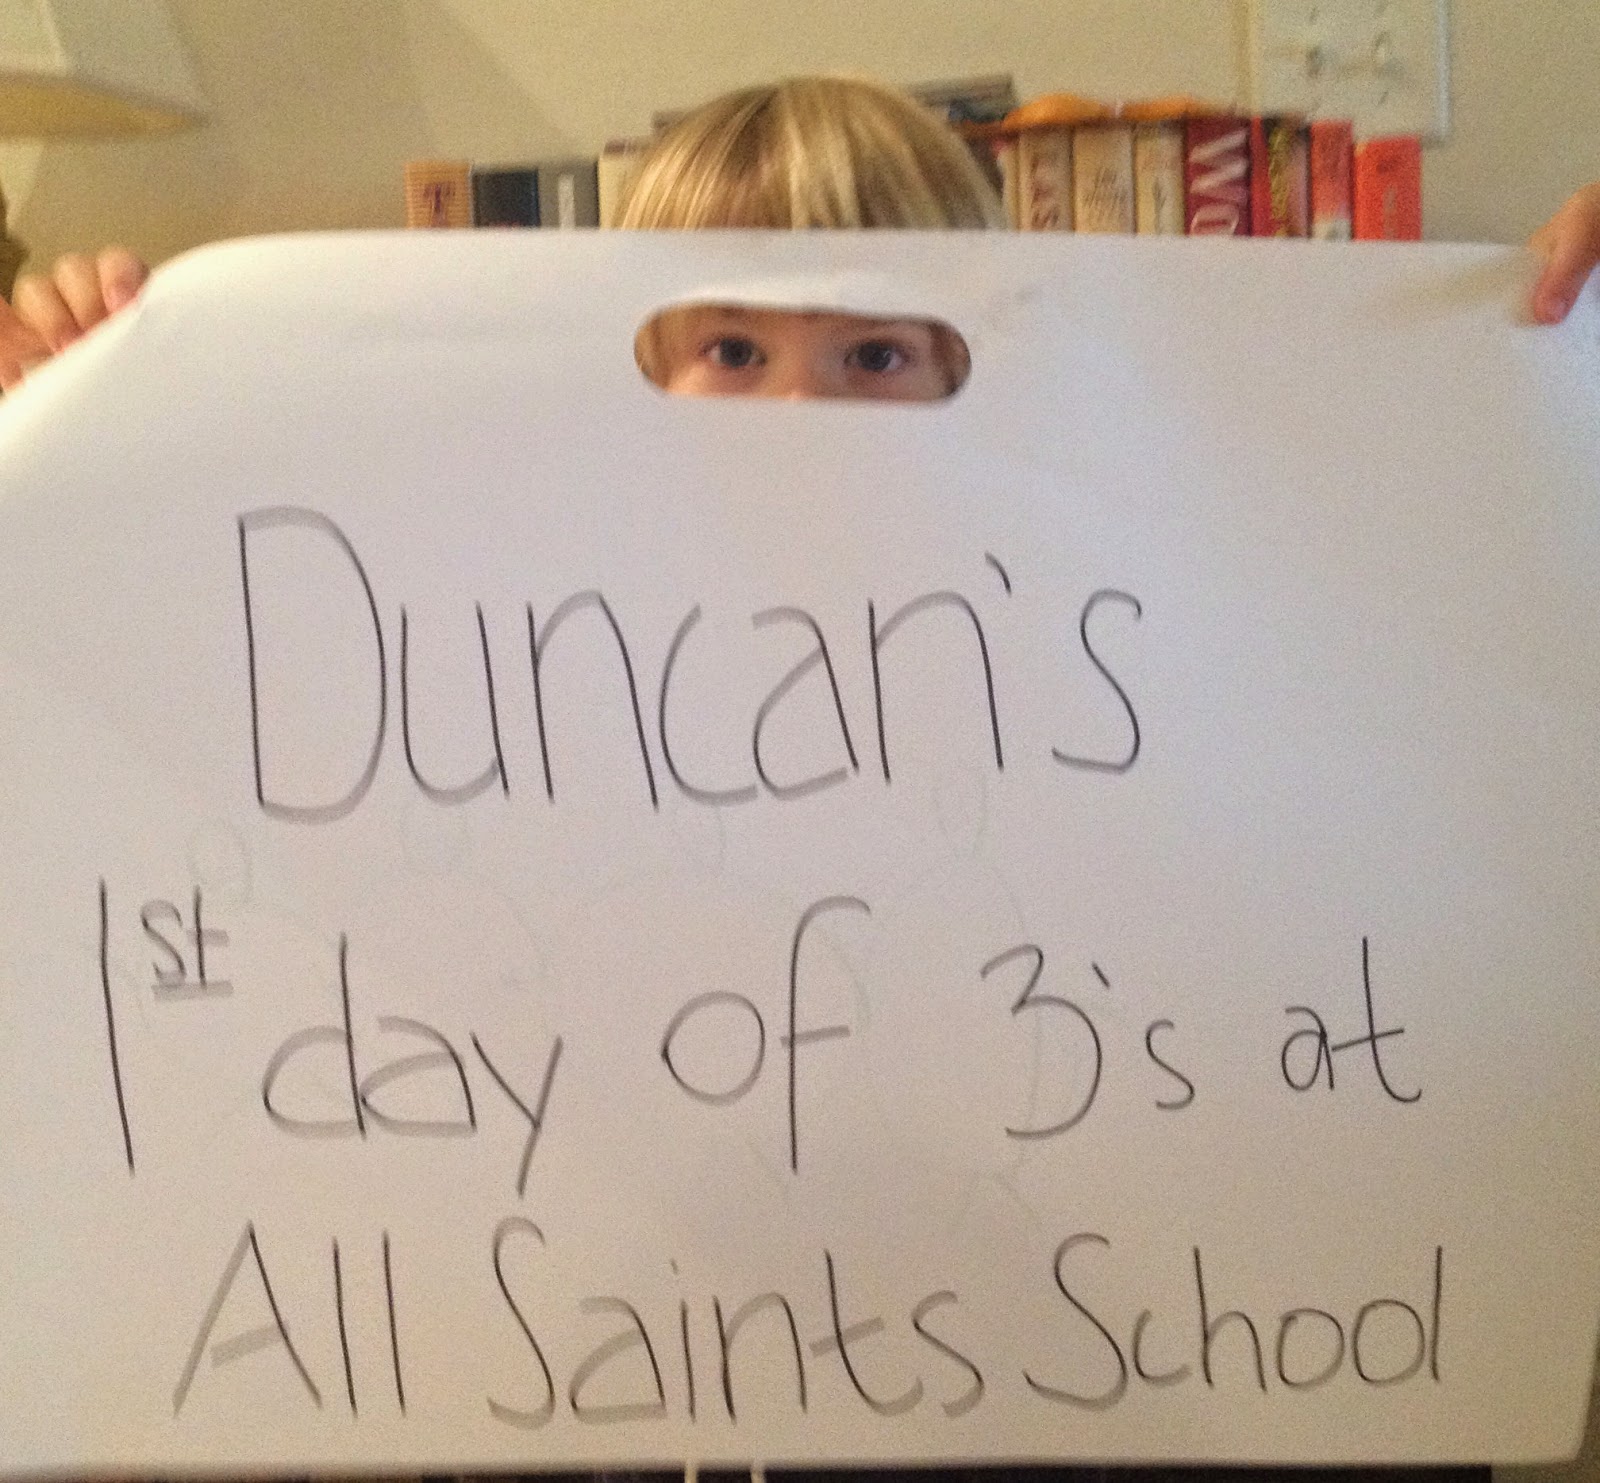 Duncan's
1st day of 3's at
All Saints School